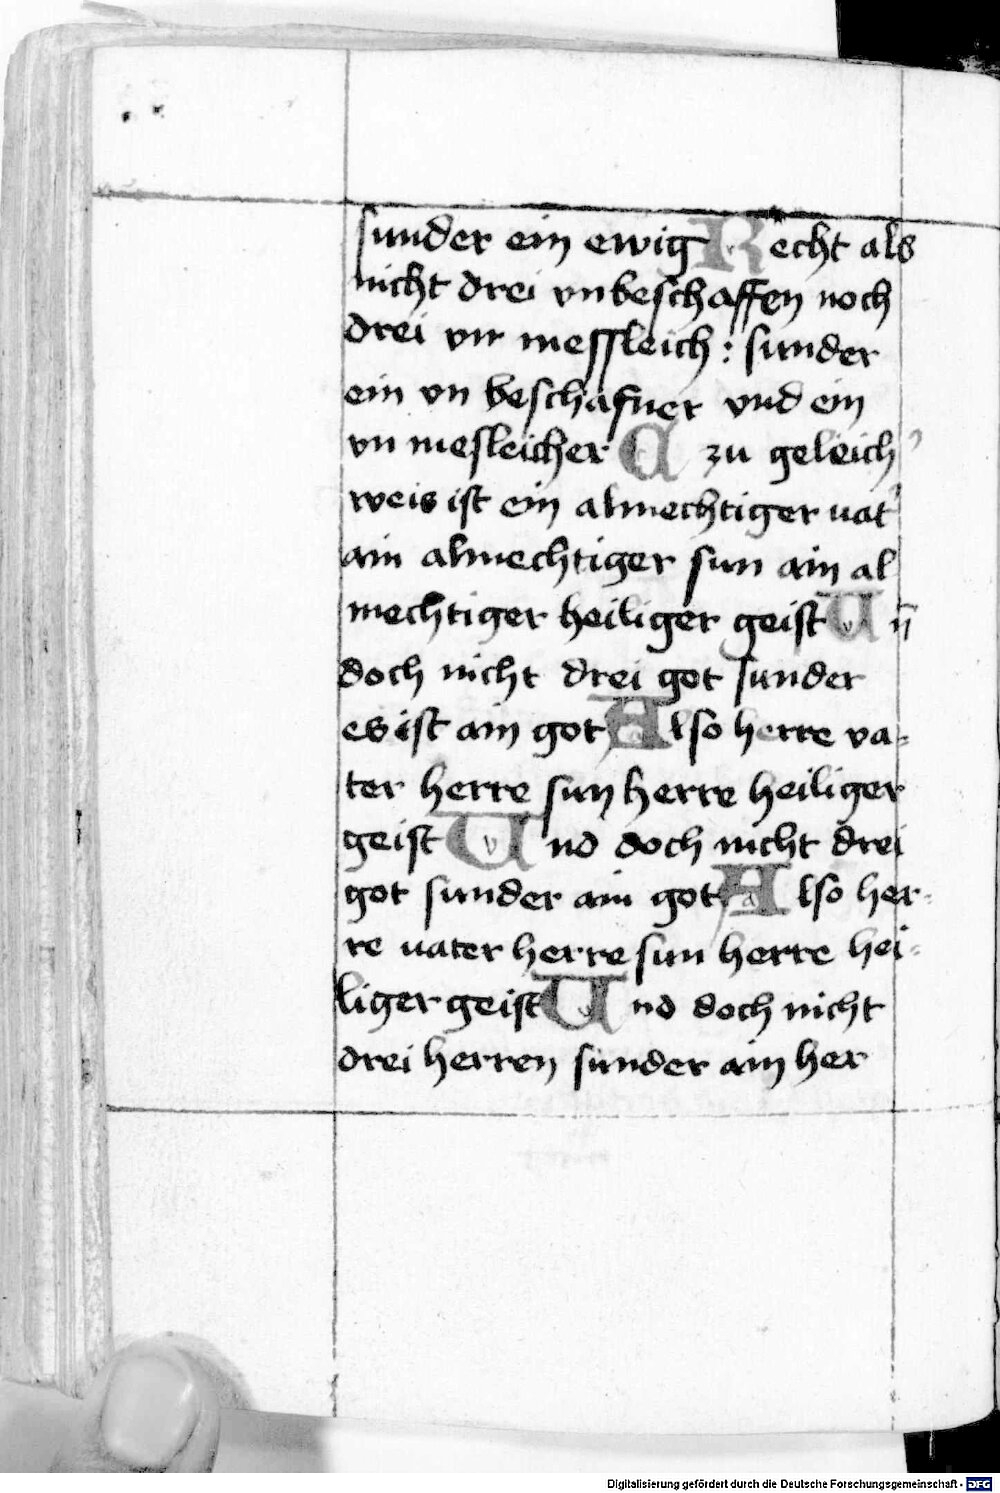 sunder ein ewig Recht als
nicht drei vnbeschaffen noch
drei vn messleich : sunder
ein vn beschafner vnd ein
vn mesleicher A zu geleich
weis ist ein almechtiger uat'
ain almechtiger sun ain al
mechtiger heiliger geist Vn̄
doch nicht drei got sunder
es ist ain got Also herre va-
ter herre sun herre heiliger
geist Vnd doch nicht drei
got sunder ain got Also her-
re uater herre sun herre hei-
liger geist Vnd doch nicht
drei herren sunder ain her
Digitalisierung gefördert durch die Deutsche Forschungsgemeinschaft - DFG